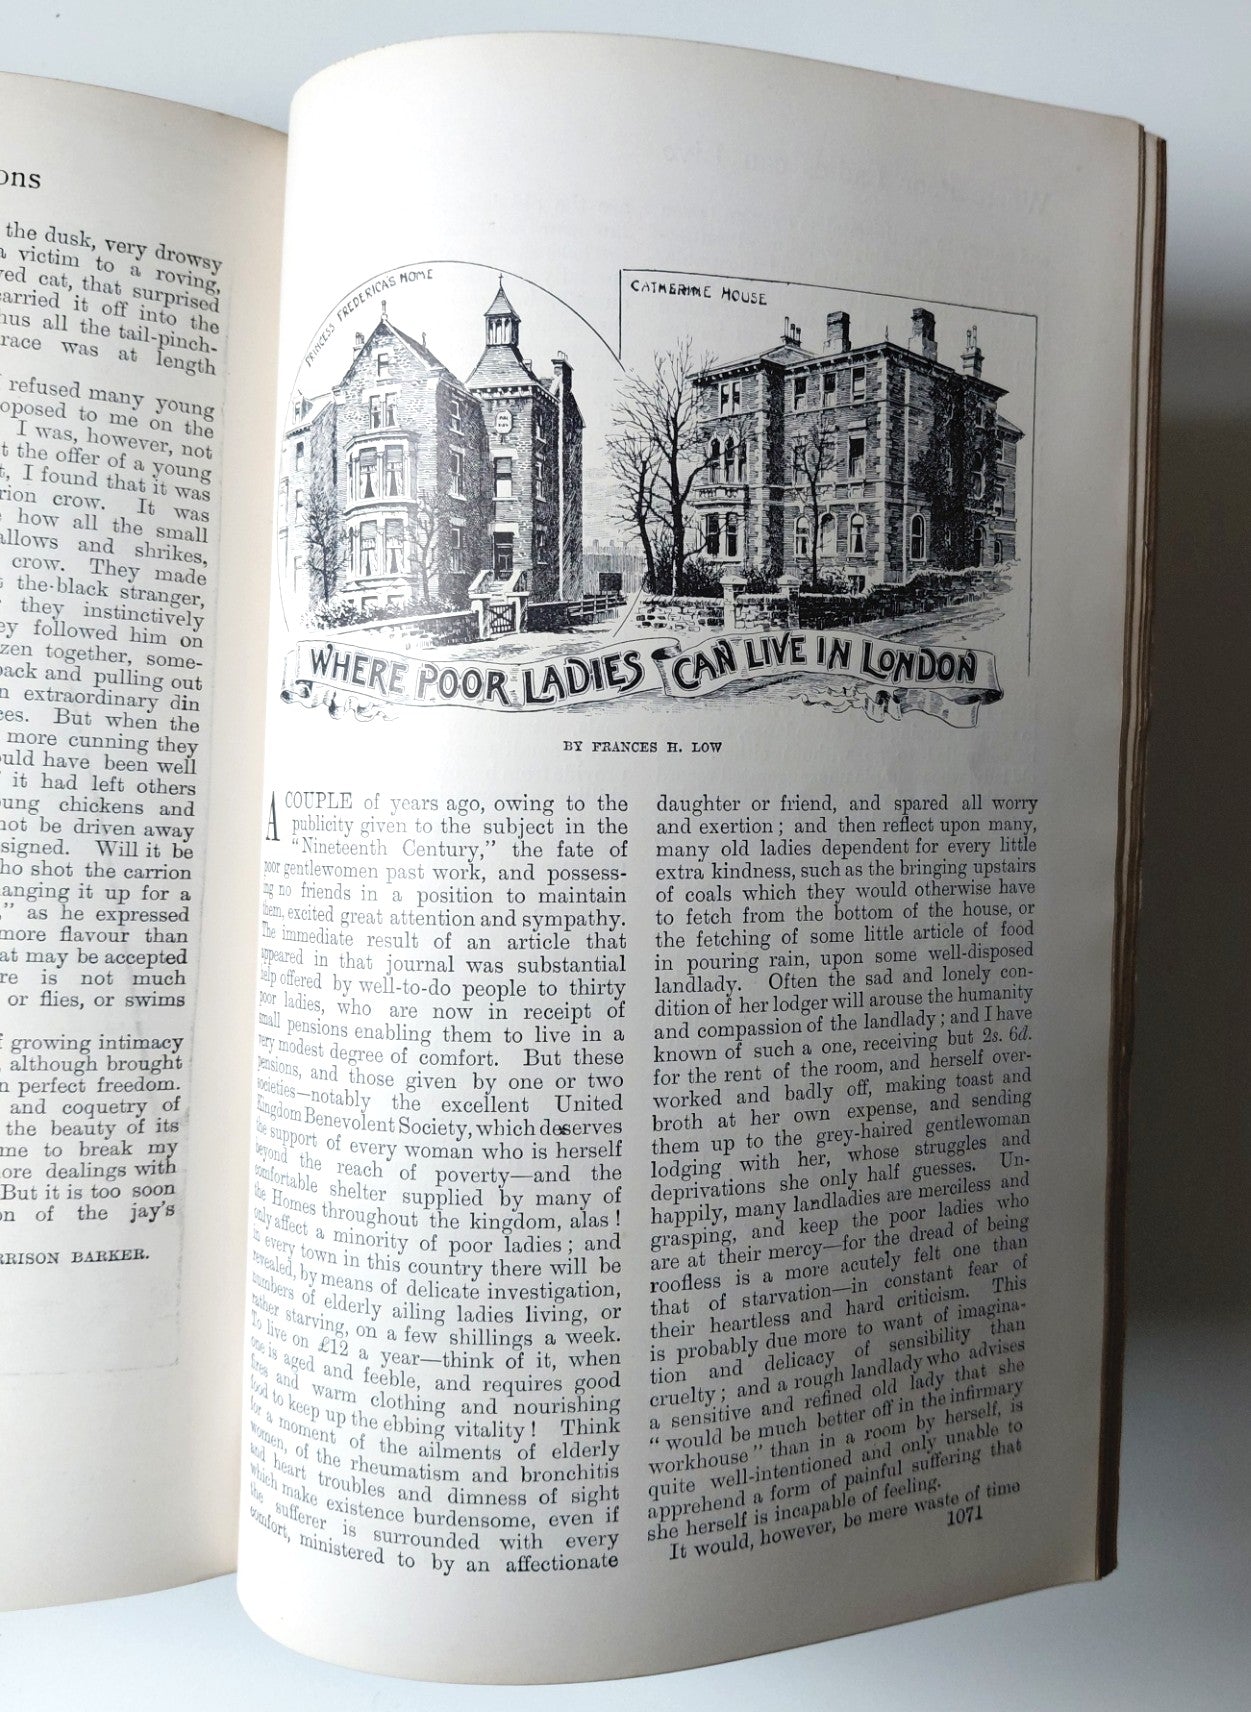 ons
the dusk, very drowsy
a victim to a roving,
ved cat, that surprised
carried it off into the
hus all the tail-pinch-
race was at length
refused many young
oposed to me on the
I was, however, not
t the offer of a young
t, I found that it was
rion crow. It was
how all the small
allows and shrikes,
crow. They made
the-black stranger,
they instinctively
ey followed him on
zen together, some-
back and pulling out
n extraordinary din
ces. But when the
more cunning they
uld have been well
it had left others
oung chickens and
not be driven away
signed. Will it be
ho shot the carrion
hanging it up for a
," as he expressed
more flavour than
at may be accepted
re is not much
or flies, or swims
f growing intimacy
, although brought
n perfect freedom.
and coquetry of
the beauty of its
me to break my
ore dealings with
But it is too soon
on of the jay's
RRISON BARKER.
PRINCESS FREDERICA'S HOME
CATHERINE HOUSE
WHERE POOR LADIES CAN LIVE IN LONDON
BY FRANCES H. LOW
A COUPLE of years ago, owing to the
publicity given to the subject in the
"Nineteenth Century," the fate of
poor gentlewomen past work, and possess-
ing no friends in a position to maintain
them, excited great attention and sympathy.
The immediate result of an article that
appeared in that journal was substantial
help offered by well-to-do people to thirty
poor ladies, who are now in receipt of
small pensions enabling them to live in a
very modest degree of comfort. But these
pensions, and those given by one or two
societies—notably the excellent United
Kingdom Benevolent Society, which deserves
the support of every woman who is herself
beyond the reach of poverty—and the
comfortable shelter supplied by many of
the Homes throughout the kingdom, alas!
only affect a minority of poor ladies; and
in every town in this country there will be
revealed, by means of delicate investigation,
numbers of elderly ailing ladies living, or
rather starving, on a few shillings a week.
To live on £12 a year—think of it, when
one is aged and feeble, and requires good
fires and warm clothing and nourishing
food to keep up the ebbing vitality! Think
for a moment of the ailments of elderly
women, of the rheumatism and bronchitis
and heart troubles and dimness of sight
which make existence burdensome, even if
the sufferer is surrounded with every
comfort, ministered to by an affectionate
daughter or friend, and spared all worry
and exertion; and then reflect upon many,
many old ladies dependent for every little
extra kindness, such as the bringing upstairs
of coals which they would otherwise have
to fetch from the bottom of the house, or
the fetching of some little article of food
in pouring rain, upon some well-disposed
landlady. Often the sad and lonely con-
dition of her lodger will arouse the humanity
and compassion of the landlady; and I have
known of such a one, receiving but 2s. 6d.
for the rent of the room, and herself over-
worked and badly off, making toast and
broth at her own expense, and sending
them up to the grey-haired gentlewoman
lodging with her, whose struggles and
deprivations she only half guesses. Un-
happily, many landladies are merciless and
grasping, and keep the poor ladies who
are at their mercy—for the dread of being
roofless is a more acutely felt one than
that of starvation—in constant fear of
their heartless and hard criticism. This
is probably due more to want of imagina-
tion and delicacy of sensibility than
cruelty; and a rough landlady who advises
a sensitive and refined old lady that she
"would be much better off in the infirmary
workhouse" than in a room by herself, is
quite well-intentioned and only unable to
apprehend a form of painful suffering that
she herself is incapable of feeling.
It would, however, be mere waste of time
1071